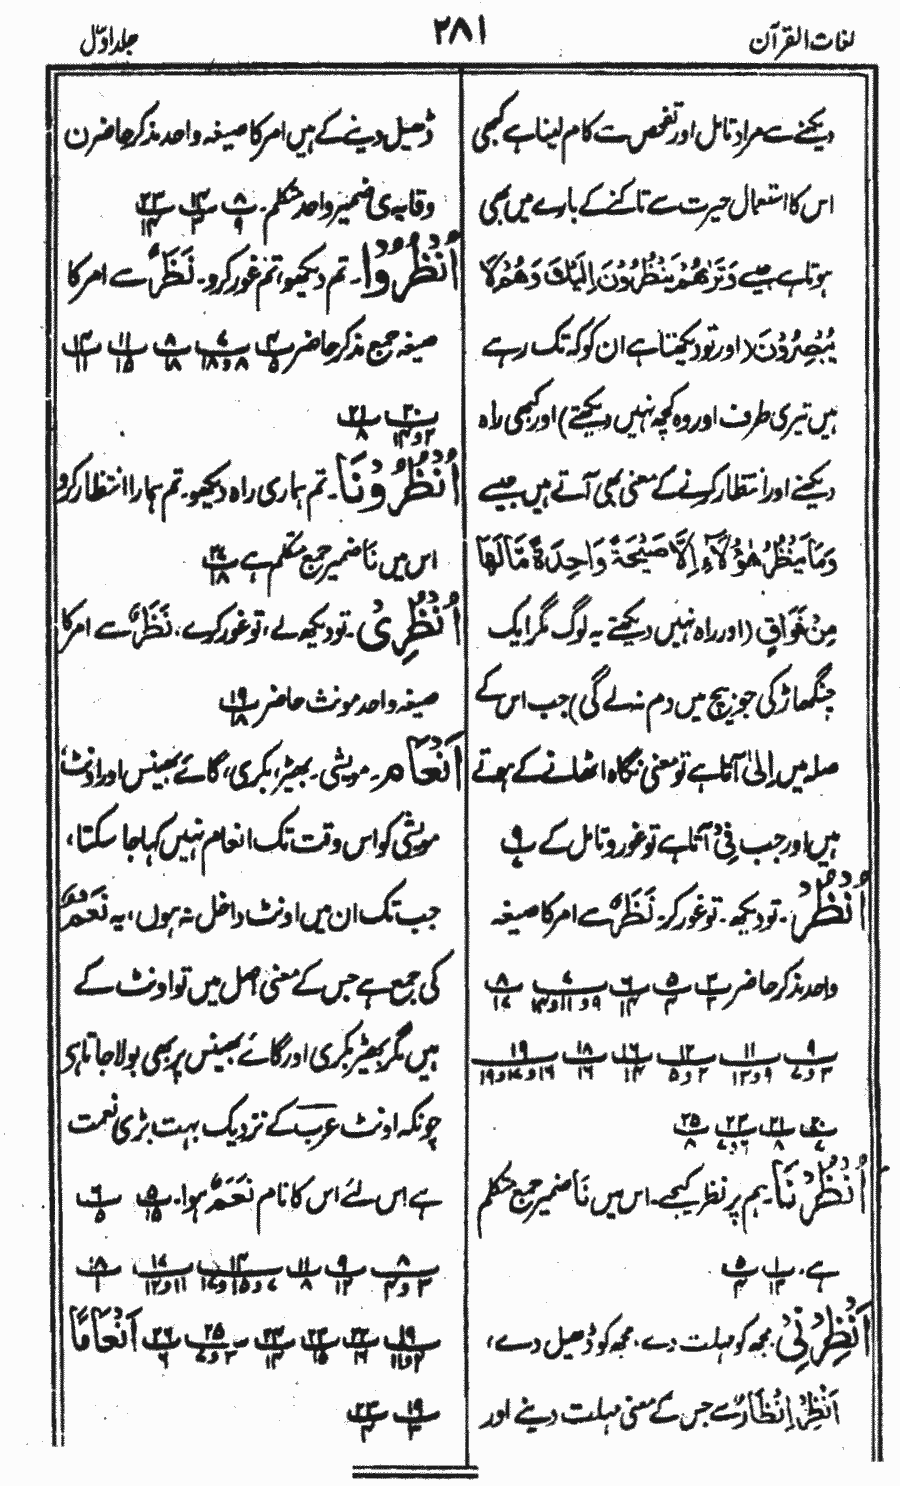 لغات القرآن
۲۸۱
جلد اوّل
دیکھنے سے مراد تامل اور تفحص سے کام لینا ہے کبھی
اس کا استعمال حیرت سے تاکنے کے بارے میں بھی
ہوتا ہے جیسے وَتَرٰىهُمْ يَنْظُرُوْنَ اِلَيْكَ وَهُمْ لَا
يُبْصِرُوْنَ (اور تو دیکھتا ہے ان کو کہ تک رہے
ہیں تیری طرف اور وہ کچھ نہیں دیکھتے) اور کبھی راہ
دیکھنے اور انتظار کرنے کے معنی بھی آتے ہیں جیسے
وَمَا يَنْظُرُ هٰؤُلَآءِ اِلَّا صَيْحَةً وَّاحِدَةً مَّا لَهَا
مِنْ فَوَاقٍ (اور راہ نہیں دیکھتے یہ لوگ مگر ایک
چنگھاڑ کی جو بیچ میں دم نہ لے گی) جب اس کے
صلہ میں اِلیٰ آتا ہے تو معنی نگاہ اٹھانے کے ہوتے
ہیں اور جب فِیْ آتا ہے تو غور و تامل کے ۹/۷
اُنْظُرْ۔ تو دیکھ۔ تو غور کر۔ نَظَرٌ سے امر کا صیغہ
واحد مذکر حاضر ۳/۳ ۵/۴ ۶/۱۴ ۷/۹ و ۱۱ و ۱۴ ۸/۱۷
۹/۳ و ۷ ۱۱/۹ و ۱۳ ۱۲/۲ و ۵ ۱۶/۱۴ ۱۸/۱۶ ۱۹/۱۶ و ۱۷ و ۱۹
۲۰/۷ ۲۱/۸ ۲۳/۶ و ۷ ۲۵/۸
اُنْظُرْنَا۔ ہم پر نظر کیجے۔ اس میں نَا ضمیر جمع متکلم
ہے۔ ۱/۱۳ ۵/۴
اَنْظِرْنِیْ۔ مجھ کو مہلت دے۔ مجھ کو ڈھیل دے،
اَنْظِرْ اِنْظَارٌ سے جس کے معنی مہلت دینے اور
ڈھیل دینے کے ہیں امر کا صیغہ واحد مذکر حاضر ن
وقایہ ی ضمیر واحد متکلم۔ ۸/۹ ۱۴/۳ ۲۳/۱۴
اُنْظُرُوْا۔ تم دیکھو، تم غور کرو۔ نَظَرٌ سے امر کا
صیغہ جمع مذکر حاضر ۴/۵ ۷/۸ و ۱۸ ۸/۱۸ ۱۱/۱۵ ۱۴/۱۱
۲۰/۲ و ۱۴ ۲۱/۸
اُنْظُرُوْنَا۔ تم ہماری راہ دیکھو۔ تم ہمارا انتظار کرو
اس میں نَا ضمیر جمع متکلم ہے ۲۷/۱۸
اُنْظُرِیْ۔ تو دیکھ لے، تو غور کر لے، نَظَرٌ سے امر کا
صیغہ واحد مونث حاضر ۱۹/۱۸
اَنْعَام۔ مویشی۔ بھیڑ، بکری، گائے بھینس اور اونٹ،
مویشی کو اس وقت تک انعام نہیں کہا جا سکتا،
جب تک ان میں اونٹ داخل نہ ہوں، یہ نَعَمٌ
کی جمع ہے جس کے معنی اصل میں تو اونٹ کے
ہیں مگر بھیڑ بکری اور گائے بھینس پر بھی بولا جاتا ہی
چونکہ اونٹ عرب کے نزدیک بہت بڑی نعمت
ہے اس لئے اس کا نام نَعَمٌ ہوا۔ ۵/۱۵ ۶/۵
۸/۳ و ۴ ۹/۱۲ ۱۱/۸ ۱۴/۷ و ۱۵ و ۱۷ ۱۷/۱۱ و ۱۲ ۱۸/۱
۱۹/۲ و ۱۱ ۲۲/۱۶ ۲۳/۱۵ ۲۴/۱۳ ۲۵/۳ و ۷ ۲۶/۶ اَنْعَامًا
۱۹/۳ ۲۳/۴